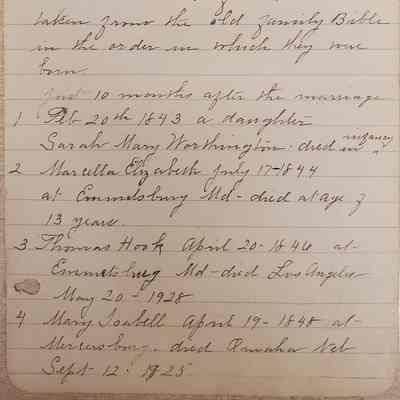 taken from the old family Bible
in the order in which they were
born.
Just 10 months after the marriage
1 Feb 20th 1843 a daughter
Sarah Mary Worthington. died in infancy
2 Marcella Elizabeth July 17-1844
at Emmetsburg Md - died at age of
13 years.
3 Thomas Hook April 20-1846 at
Emmetsburg Md - died Los Angeles
May 20-1928
4 Mary Isabell April 19-1848 at
Mercersburg. died Omaha Neb
Sept 12. 1925